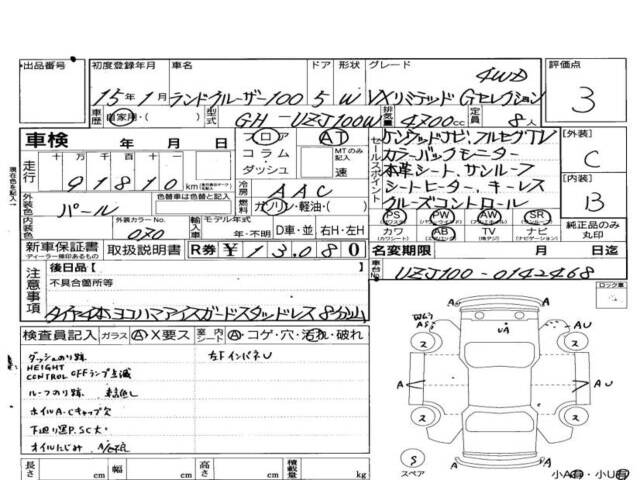 出品番号 初度登録年月 車名 ドア 形状 グレード 評価点
4WD
15年1月 ランドクルーザー100 5 W VXリミテッド Gセレクション 3
車歴 自家用・( ) 型式 GH-UZJ100W 排気量 4700cc 定員 8人
車検 年 月 日
フロア コラム・ダッシュ AT MTのみ記入 速
セールスポイント
ケンウッドナビ、フルセグTV
カラーバックモニター
本革シート、サンルーフ
シートヒーター、キーレス
クルーズコントロール
【外装】 C
【内装】 B
走行 十万千百十一
91810 km
冷房 AAC
燃料 ガソリン・軽油・( )
外装色 パール 色替車は色替と記入
内装色 外装カラーNo. 070
輸入車 モデル年式 年・不明 D車・並 右H・左H
PS PW AW SR
カワ AB TV ナビ
純正品のみ丸印
新車保証書 取扱説明書 R券 ¥13,080
ディーラー捺印あるもの
名変期限 月 日迄
注意事項 後日品【 】
車台No. UZJ100-0142468
不具合箇所等
タイヤ4本ヨコハマアイスガードスタッドレス8分山
ロック車
検査員記入 ガラス A・X要ス 室内シート A・コゲ・穴・汚れ・破れ
ダッシュのり跡 左FインパネU
HEIGHT CONTROL OFFランプ点滅
ルーフのり跡
ホイルA・Cキャップ欠
下廻り錆P.SC大
オイルにじみ
A UA A U
2 2
A A A U
2 2
A
S スペア
小A有・小U有
長さ cm 幅 cm 高さ cm 積載量 kg